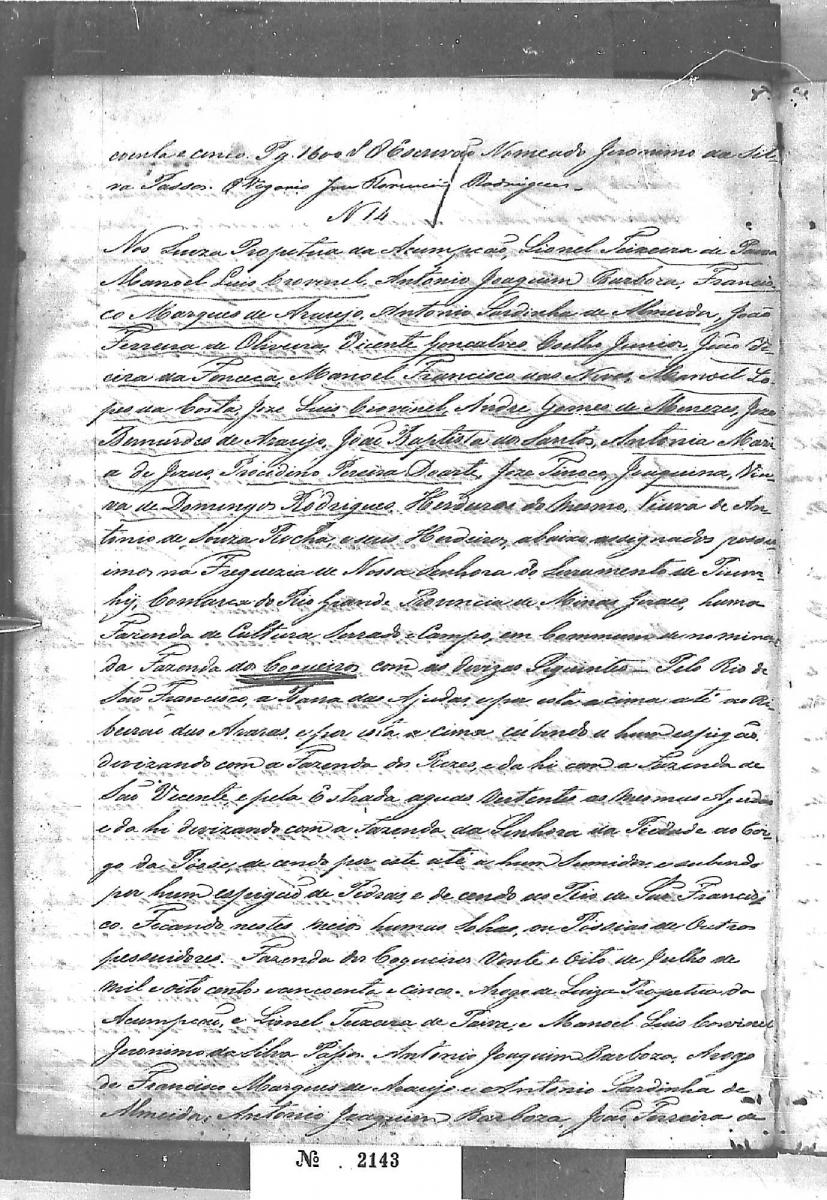 coenta e cinco. Pg. 1600 O Escrivão Nomeado Jeronimo da Sil-
va Passos. O Vigario Joze Florencio Rodrigues
N 14
Nos Luiza Propetua da Acumpcão, Lionel Teixeira de Paiva
Manoel Luis Coroinel, Antônio Joaquim Barboza, Francis-
co Marques de Araujo, Antonio Sardinha de Almeida, João
Ferreira de Oliveira, Vicente Goncalves Coelho Junior, João
da Fonceca, Manoel Francisco das Neves, Manoel Lo-
pes da Costa, Joze Luis Coroinel, Andre Gomes de Menezes, Joze
Bernardes de Araujo, João Baptista dos Santos, Antonia Mari-
a de Jezus, Pereira Doarte, Joze Tinoco, Joaquina, Viu-
va de Domingos Rodrigues, Herdeiros do Mesmo, Viuva de An-
tonio de Souza Rocha, e seus Herdeiros, abaixo assignados possu-
imos na Freguezia de Nossa Senhora do Livramento de Pium-
hy, Comarca do Rio Grande Provincia de Minas Geraes, huma
Fazenda de Cultura Serrado e Campo, em Commum denomina-
da Fazenda dos Coqueiros com as divizas Siguintes — Pelo Rio de
São Francisco, a Barra das Ajudas, e por esta a cima até ao Ri-
beirão das Araras, e por esta a cima cubindo a hum espigão
divizando com a Fazenda dos Rezes, e da hi com a Fazenda de
São Vicente, e pela Estrada aguas Vertentes as mesmas Ajudas
e da hi divizando com a Fazenda da Senhora da Piedade ao Cor-
go da Posse, de cendo por este até a hum Sumidor, e subindo
por hum espigão de Pedras e de cendo ao Rio de São Francis-
co. Ficando nestes meios humas Solhas, ou Pósias de Outros
pessuidores. Fazenda dos Coqueiros Vinte e Oito de Julho de
mil e oito centos e cincoenta e cinco. Arogo de Luiza Propetua da
Acumpcão, e Lionel Teixeira de Paiva, e Manoel Luis Coroinel
Jeronimo da Silva Passos. Antônio Joaquim Barboza, Arogo
de Francisco Marques de Araujo e Antônio Sardinha de
Almeida, Antonio Joaquim Barboza, João Ferreira de
Nº 2143